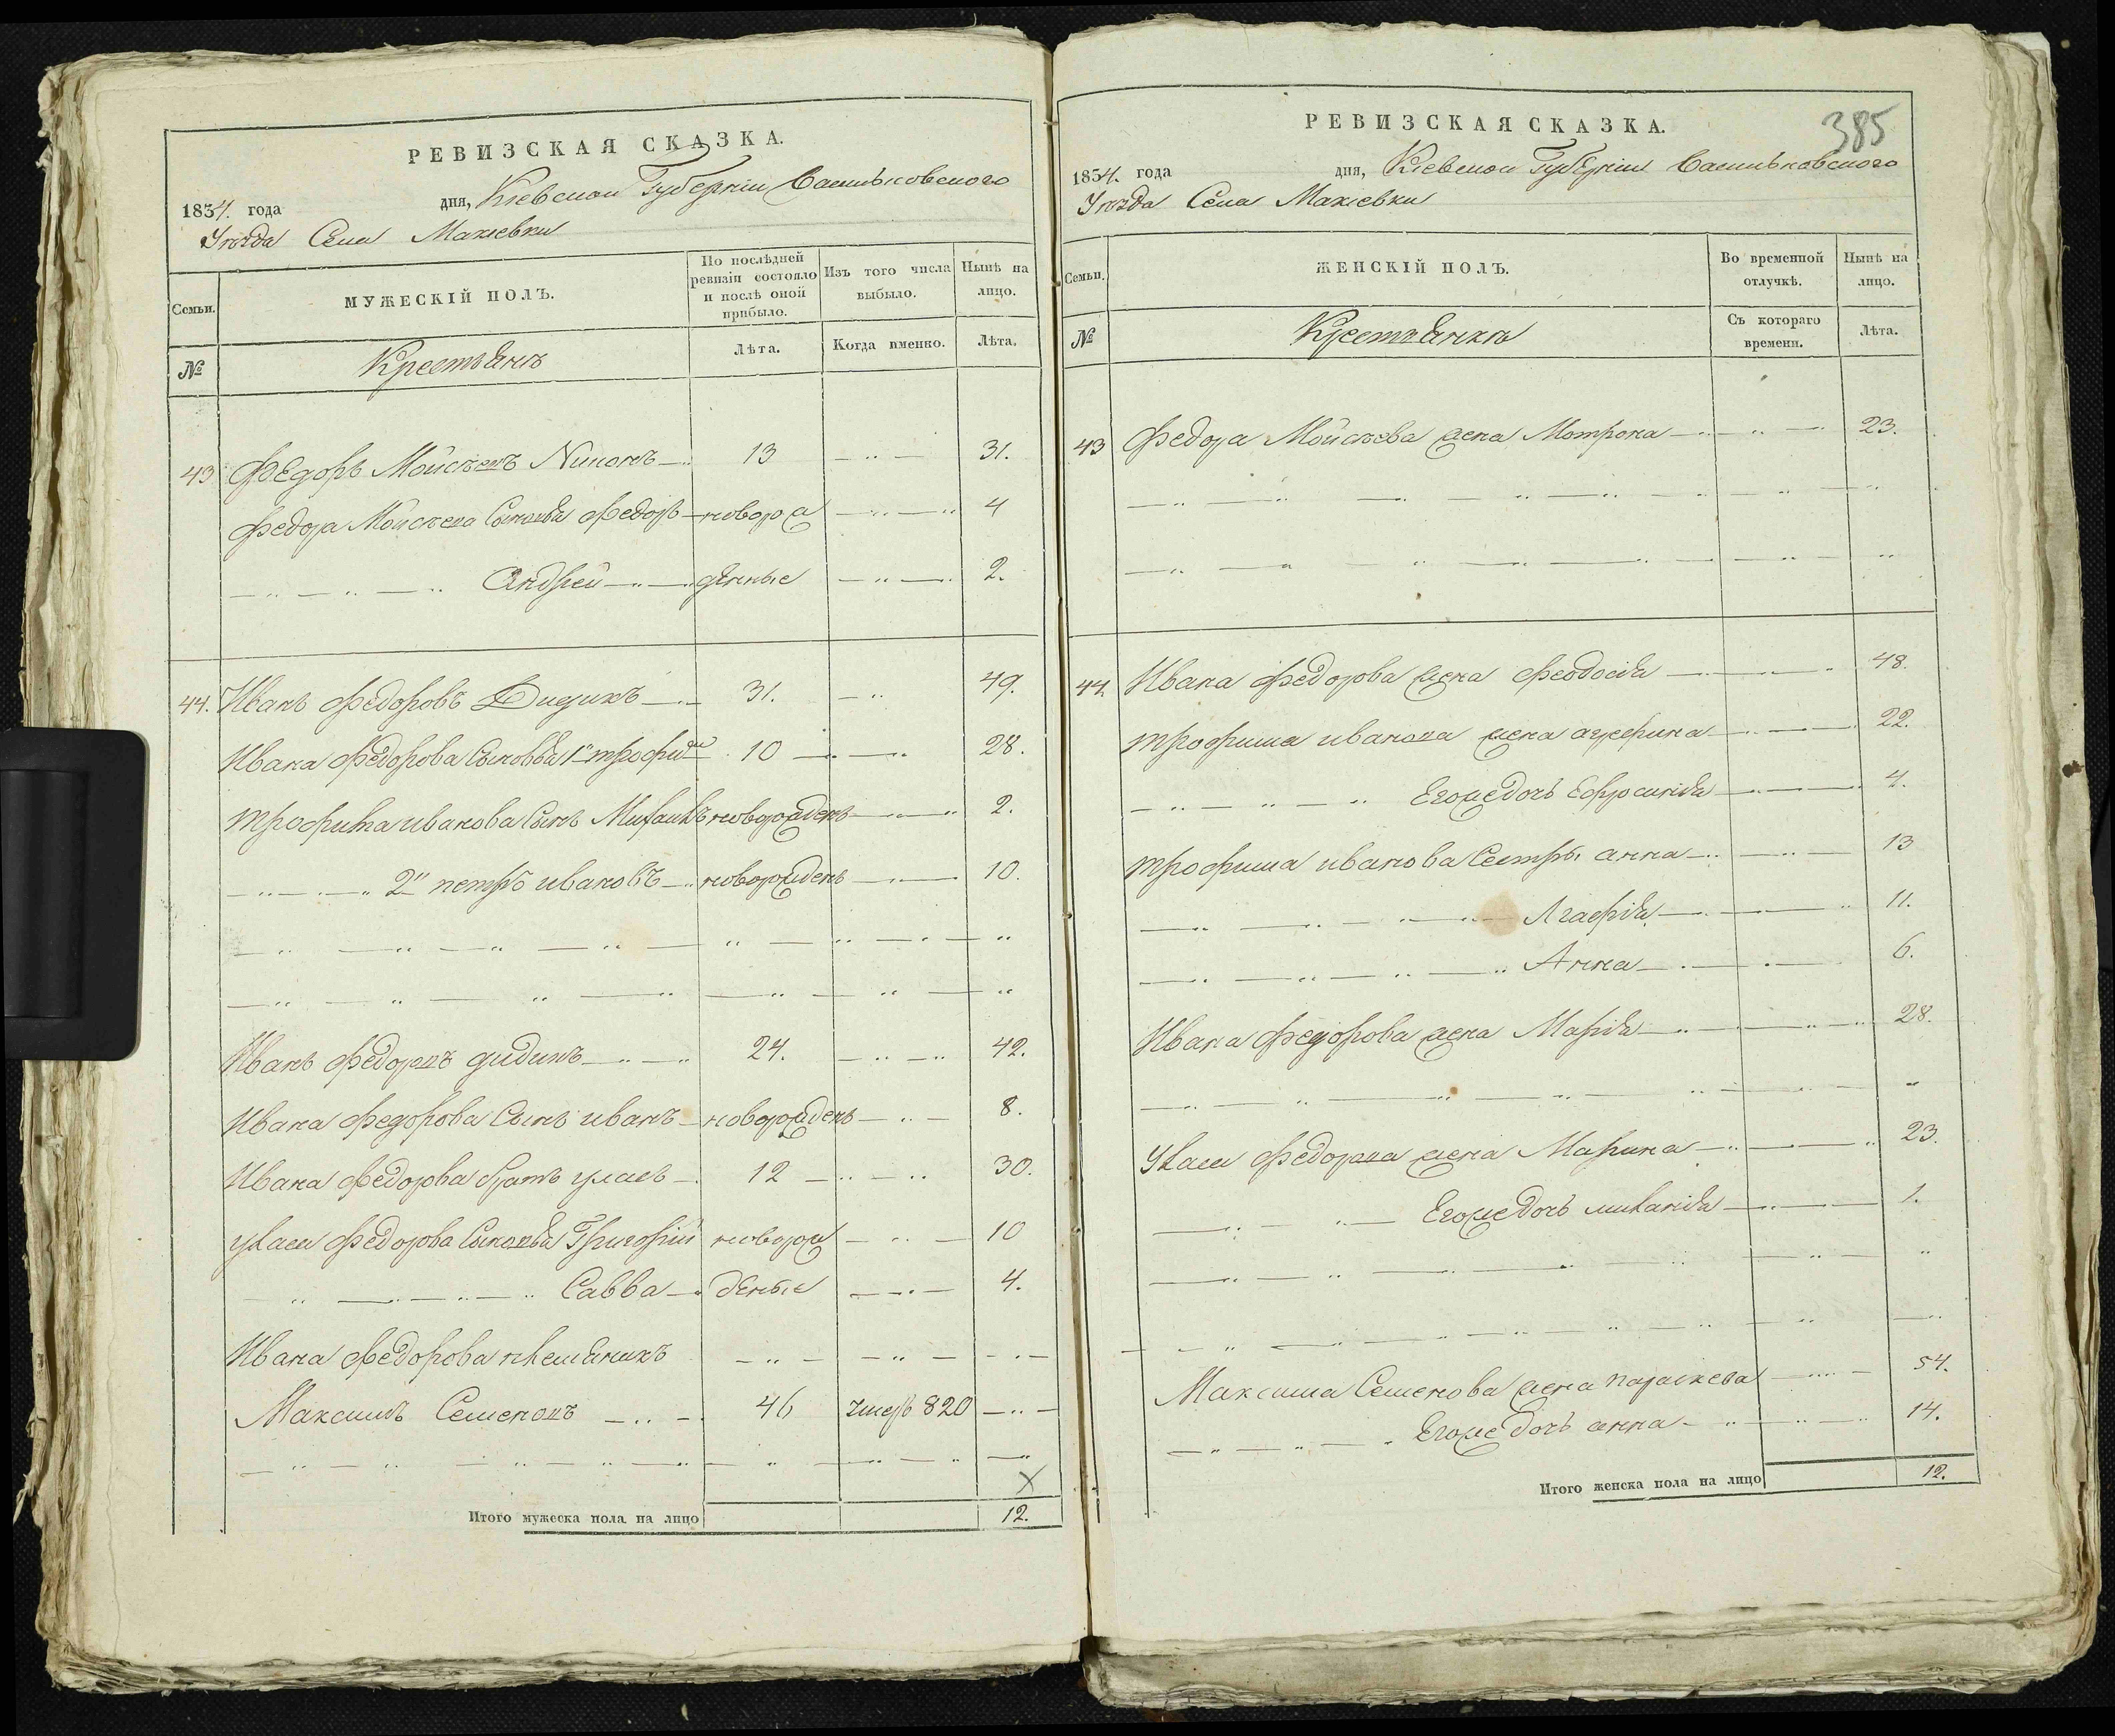 РЕВИЗСКАЯ СКАЗКА.
1834. года дня, Кіевской Губерніи Васильковского
Уѣзда Села Макіевки
Семьи. МУЖЕСКІЙ ПОЛЪ. По послѣдней ревизіи состояло и послѣ оной прибыло. Изъ того числа выбыло. Нынѣ на лицо.
№ Крестьянъ Лѣта. Когда именно. Лѣта.
43 Федоръ Мойсѣевъ 13 31.
Федора Мойсѣева Сыновья Федоръ новоро 4
Андрей 2.
44. Иванъ Федоровъ Дидикъ 31. 49.
Ивана Федорова Сыновья 1й трофим 10 28.
трофима иванова Сынъ Михаилъ новорожденъ 2.
2й петръ ивановъ новорожденъ 10.
Иванъ Федоровъ дидикъ 24. 42.
Ивана Федорова Сынъ иванъ новорожденъ 8.
Ивана Федорова братъ уласъ 12 30.
уласа Федорова Сыновья Григорій новорож 10
Савва деные 4.
Ивана Федорова племяникъ
Максимъ Семеновъ 46 умеръ 820
Итого мужеска пола на лицо 12.
385
РЕВИЗСКАЯ СКАЗКА.
1834. года дня, Кіевской Губерніи Васильковского
Уѣзда Села Макіевки
Семьи. ЖЕНСКІЙ ПОЛЪ. Во временной отлучкѣ. Нынѣ на лицо.
№ Крестьянки Съ котораго времени. Лѣта.
43 Федора Мойсѣева жена Мотрона 23.
44. Ивана Федорова жена Феодосія 48.
трофима иванова жена 22.
Егоже дочь Ефросинія 4.
трофима иванова Сестры анна 13
Агафія 11.
Анна 6.
Ивана Федорова жена Марія 28.
Уласа Федорова жена Марина 23.
Егоже дочь миланія 1.
Максима Семенова жена параскева 54.
Егоже дочь анна 14.
Итого женска пола на лицо 12.